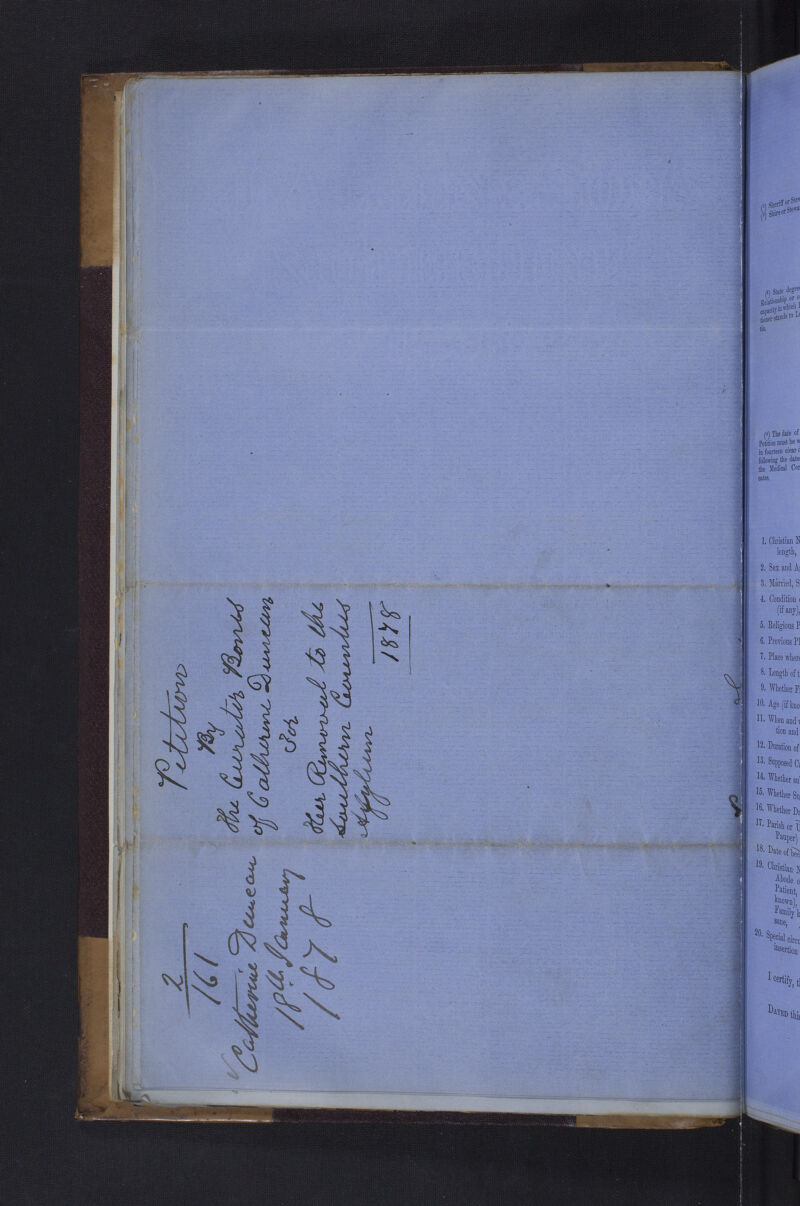 2
161
Catherine Duncan
18th January
1878
Petition
By
The Curator Bonis
of Catherine Duncan
For
Her Removal to the
Southern Counties
Asylum
1878
(¹) Sheriff or
(²) Shire or
(³) State
Relationship or
capacity in which
stands to
tic.
(⁴) The date of
Petition must be
in fourteen clear
following the
the Medical
cates.
1. Christian
length,
2. Sex and
3. Married,
4. Condition
(if any),
5. Religious
6. Previous
7. Place where
8. Length of
9. Whether
10. Age (if
11. When and
tion and
12. Duration of
13. Supposed
14. Whether
15. Whether
16. Whether
17. Parish or
Pauper)
18. Date of
19. Christian
Abode
Patient,
known),
Family
sane,
20. Special
insertion
I certify,
DATED